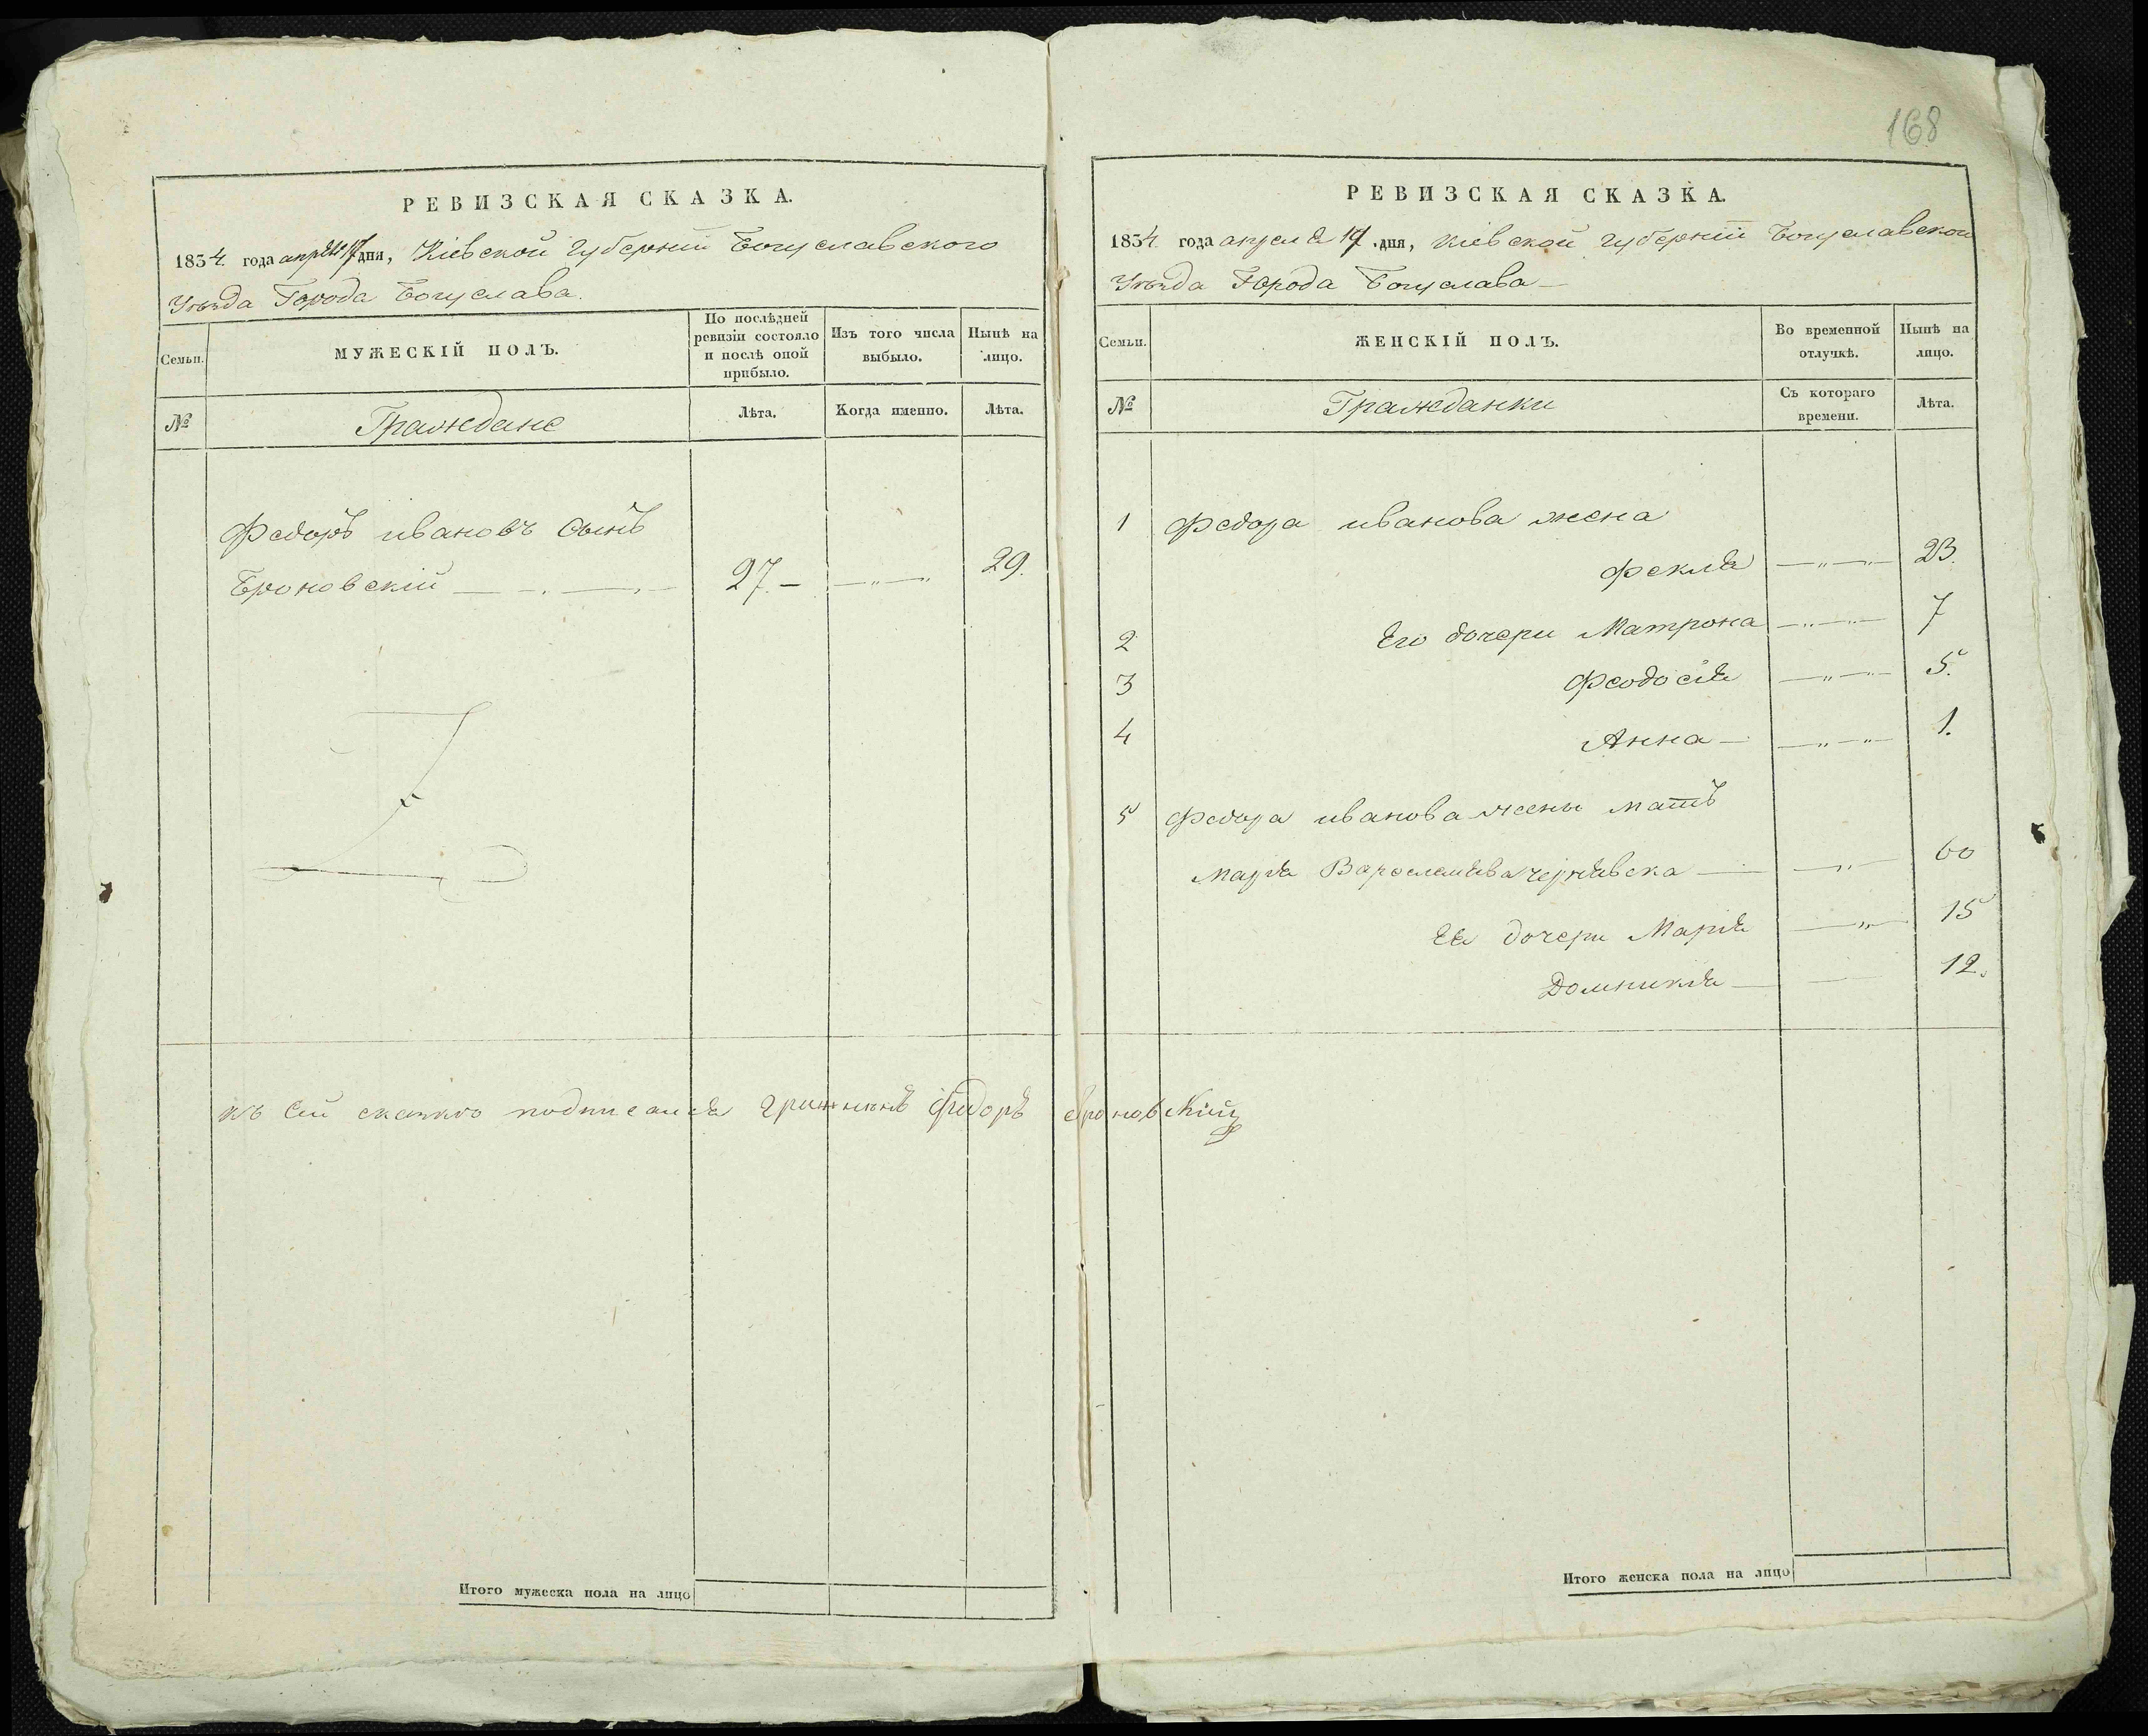 168
РЕВИЗСКАЯ СКАЗКА.
1834. года апреля 17 дня, Кіевской Губерніи Богуславского
Уѣзда Города Богуслава.
Семьи.
МУЖЕСКІЙ ПОЛЪ.
По послѣдней
ревизіи состояло
и послѣ оной
прибыло.
Изъ того числа
выбыло.
Нынѣ на
лицо.
№
Граждане
Лѣта.
Когда именно.
Лѣта.
Федоръ ивановъ Сынъ
Броновскій 27. 29.
къ Сей скаскѣ подписался Федоръ броновскій
Итого мужеска пола на лицо
РЕВИЗСКАЯ СКАЗКА.
1834. года апреля 17 дня, Кіевской Губерніи Богуславского
Уѣзда Города Богуслава
Семьи.
ЖЕНСКІЙ ПОЛЪ.
Во временной
отлучкѣ.
Нынѣ на
лицо.
№
Гражданки
Съ котораго
времени.
Лѣта.
1 Федора иванова жена
Фекля 23.
2 Его дочери Матрона 7
3 Феодосія 5.
4 Анна 1.
5 Федора иванова жены мать
Марія 60
Ея дочери Марія 15
Домникія 12.
Итого женска пола на лицо